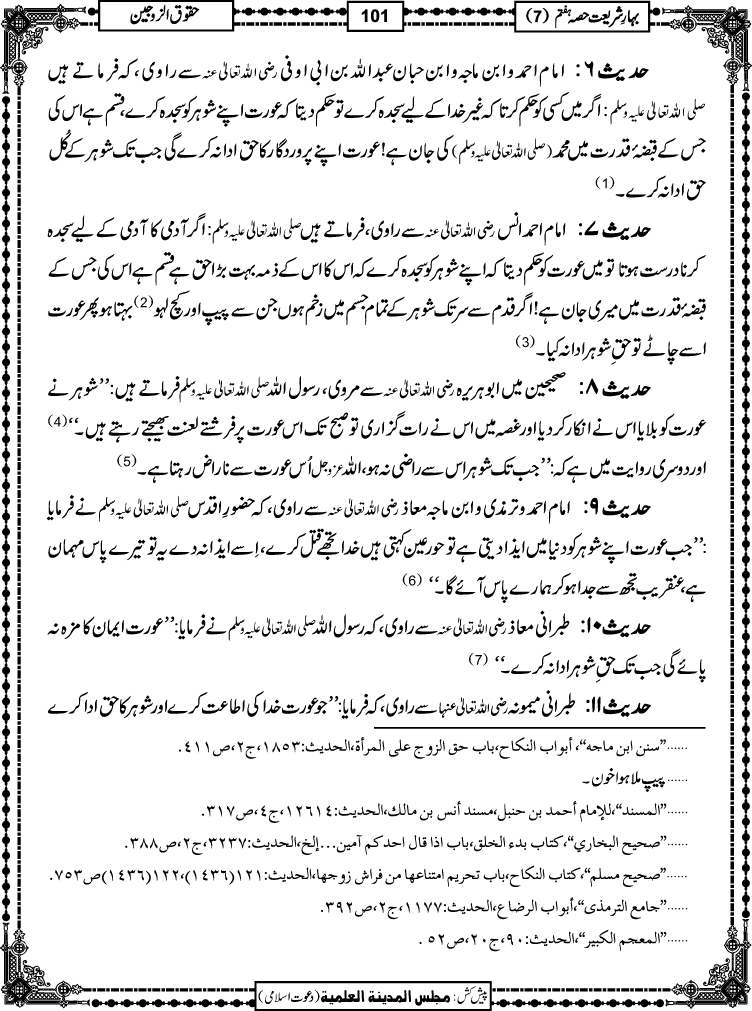 بہارِ شریعت حصہ ہفتم (7)
101
حقوق الزوجین
حدیث ۶: امام احمد و ابن ماجہ و ابن حبان عبداللہ بن ابی اوفی رضی اللہ تعالیٰ عنہ سے راوی، کہ فرماتے ہیں
صلی اللہ تعالیٰ علیہ وسلم: اگر میں کسی کو حکم کرتا کہ غیر خدا کے لیے سجدہ کرے تو حکم دیتا کہ عورت اپنے شوہر کو سجدہ کرے، قسم ہے اس کی
جس کے قبضۂ قدرت میں محمد (صلی اللہ تعالیٰ علیہ وسلم) کی جان ہے! عورت اپنے پروردگار کا حق ادا نہ کرے گی جب تک شوہر کے کُل
حق ادا نہ کرے۔ (1)
حدیث ۷: امام احمد انس رضی اللہ تعالیٰ عنہ سے راوی، فرماتے ہیں صلی اللہ تعالیٰ علیہ وسلم: اگر آدمی کا آدمی کے لیے سجدہ
کرنا درست ہوتا تو میں عورت کو حکم دیتا کہ اپنے شوہر کو سجدہ کرے کہ اس کا اس کے ذمہ بہت بڑا حق ہے قسم ہے اس کی جس کے
قبضۂ قدرت میں میری جان ہے! اگر قدم سے سر تک شوہر کے تمام جسم میں زخم ہوں جن سے پیپ اور کچ لہو (2) بہتا ہو پھر عورت
اسے چاٹے تو حقِ شوہر ادا نہ کیا۔ (3)
حدیث ۸: صحیحین میں ابوہریرہ رضی اللہ تعالیٰ عنہ سے مروی، رسول اللہ صلی اللہ تعالیٰ علیہ وسلم فرماتے ہیں: ’’شوہر نے
عورت کو بلایا اس نے انکار کردیا اور غصہ میں اس نے رات گزاری تو صبح تک اس عورت پر فرشتے لعنت بھیجتے رہتے ہیں۔‘‘ (4)
اور دوسری روایت میں ہے کہ: ’’جب تک شوہر اس سے راضی نہ ہو، اللہ عزوجل اُس عورت سے ناراض رہتا ہے۔ (5)
حدیث ۹: امام احمد و ترمذی و ابن ماجہ معاذ رضی اللہ تعالیٰ عنہ سے راوی، کہ حضورِ اقدس صلی اللہ تعالیٰ علیہ وسلم نے فرمایا
: ’’جب عورت اپنے شوہر کو دنیا میں ایذا دیتی ہے تو حورعین کہتی ہیں خدا تجھے قتل کرے، اِسے ایذا نہ دے یہ تو تیرے پاس مہمان
ہے، عنقریب تجھ سے جدا ہو کر ہمارے پاس آئے گا۔‘‘ (6)
حدیث ۱۰: طبرانی معاذ رضی اللہ تعالیٰ عنہ سے راوی، کہ رسول اللہ صلی اللہ تعالیٰ علیہ وسلم نے فرمایا: ’’عورت ایمان کا مزہ نہ
پائے گی جب تک حقِ شوہر ادا نہ کرے۔‘‘ (7)
حدیث ۱۱: طبرانی میمونہ رضی اللہ تعالیٰ عنہا سے راوی، کہ فرمایا: ’’جو عورت خدا کی اطاعت کرے اور شوہر کا حق ادا کرے
......”سنن ابن ماجه“، أبواب النكاح، باب حق الزوج على المرأة، الحديث: ١٨٥٣، ج٢، ص٤١١.
...... پیپ ملا ہوا خون۔
......”المسند“، للإمام أحمد بن حنبل، مسند أنس بن مالك، الحديث: ١٢٦١٤، ج٤، ص٣١٧.
......”صحيح البخاري“، كتاب بدء الخلق، باب اذا قال احدكم آمين...إلخ، الحديث: ٣٢٣٧، ج٢، ص٣٨٨.
......”صحيح مسلم“، كتاب النكاح، باب تحريم امتناعها من فراش زوجها، الحديث: ١٢١(١٤٣٦)، ١٢٢(١٤٣٦)ص٧٥٣.
......”جامع الترمذى“، أبواب الرضاع، الحديث: ١١٧٧، ج٢، ص٣٩٢.
......”المعجم الكبير“، الحديث: ٩٠، ج٢٠، ص٥٢ .
پیش کش: مجلس المدينة العلمية (دعوت اسلامی)